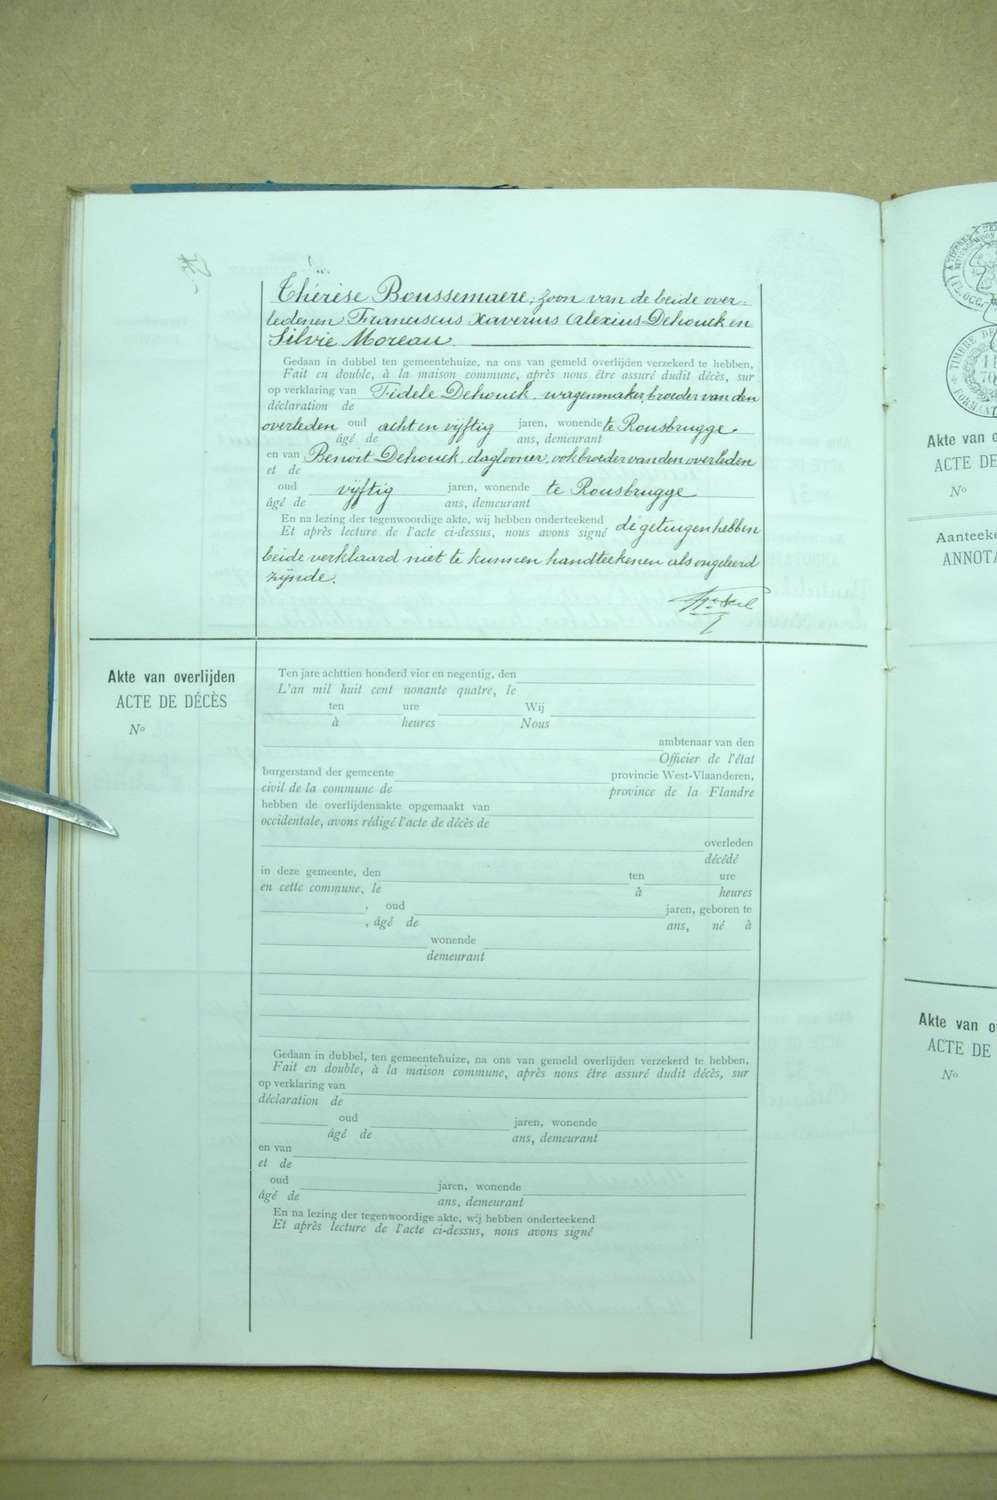 Thérèse Boussemaere; zoon van de beide over-
ledenen Franciscus Xaverius Alexius Dehouck en
Silvie Moreau
Gedaan in dubbel ten gemeentehuize, na ons van gemeld overlijden verzekerd te hebben,
Fait en double, à la maison commune, après nous être assuré dudit décès, sur
op verklaring van Fidele Dehouck, wagenmaker, broeder van den
déclaration de
overleden oud acht en vijftig jaren, wonende te Rousbrugge
âgé de ans, demeurant
en van Benoit Dehouck, daglooner, ook broeder van den overleden
et de
oud vijftig jaren, wonende te Rousbrugge
âgé de ans, demeurant
En na lezing der tegenwoordige akte, wij hebben onderteekend de getuigen hebben
Et après lecture de l'acte ci-dessus, nous avons signé
beide verklaard niet te kunnen handteekenen als ongeleerd
zijnde.
Akte van overlijden
ACTE DE DÉCÈS
No
Ten jare achttien honderd vier en negentig, den
L'an mil huit cent nonante quatre, le
ten ure Wij
à heures Nous
ambtenaar van den
Officier de l'état
burgerstand der gemeente provincie West-Vlaanderen,
civil de la commune de province de la Flandre
hebben de overlijdensakte opgemaakt van
occidentale, avons rédigé l'acte de décès de
overleden
décédé
in deze gemeente, den ten ure
en cette commune, le à heures
, oud jaren, geboren te
, âgé de ans, né à
wonende
demeurant
Gedaan in dubbel, ten gemeentehuize, na ons van gemeld overlijden verzekerd te hebben,
Fait en double, à la maison commune, après nous être assuré dudit décès, sur
op verklaring van
déclaration de
oud jaren, wonende
âgé de ans, demeurant
en van
et de
oud jaren, wonende
âgé de ans, demeurant
En na lezing der tegenwoordige akte, wij hebben onderteekend
Et après lecture de l'acte ci-dessus, nous avons signé
Akte van o
ACTE DE
No
Aanteeke
ANNOTA
Akte van o
ACTE DE
No